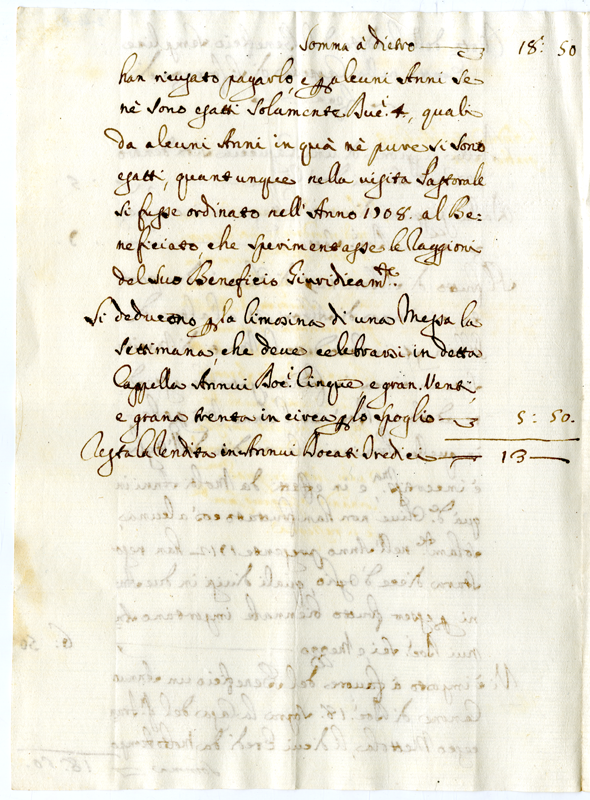 Somma à dietro — 18: 50
han ricusato pagarlo, e p alcuni Anni se
nè sono esatti solamente Duc.i 4, quali
da alcuni Anni in quà nè pure si sono
esatti, quantunque nella visita Pastorale
si fusse ordinato nell'Anno 1708. al Be:
neficiato, che sperimentasse le Raggioni
del suo Beneficio Giuridicam.te.
Si deducono p la limosina di una Messa la
settimana, che deve celebrarsi in detta
Cappella Annui Doc.i Cinque e gran. Venti,
e grana trenta in circa p lo spoglio — 5: 50.
Resta la Rendita in Annui Docati Tredici — 13 —